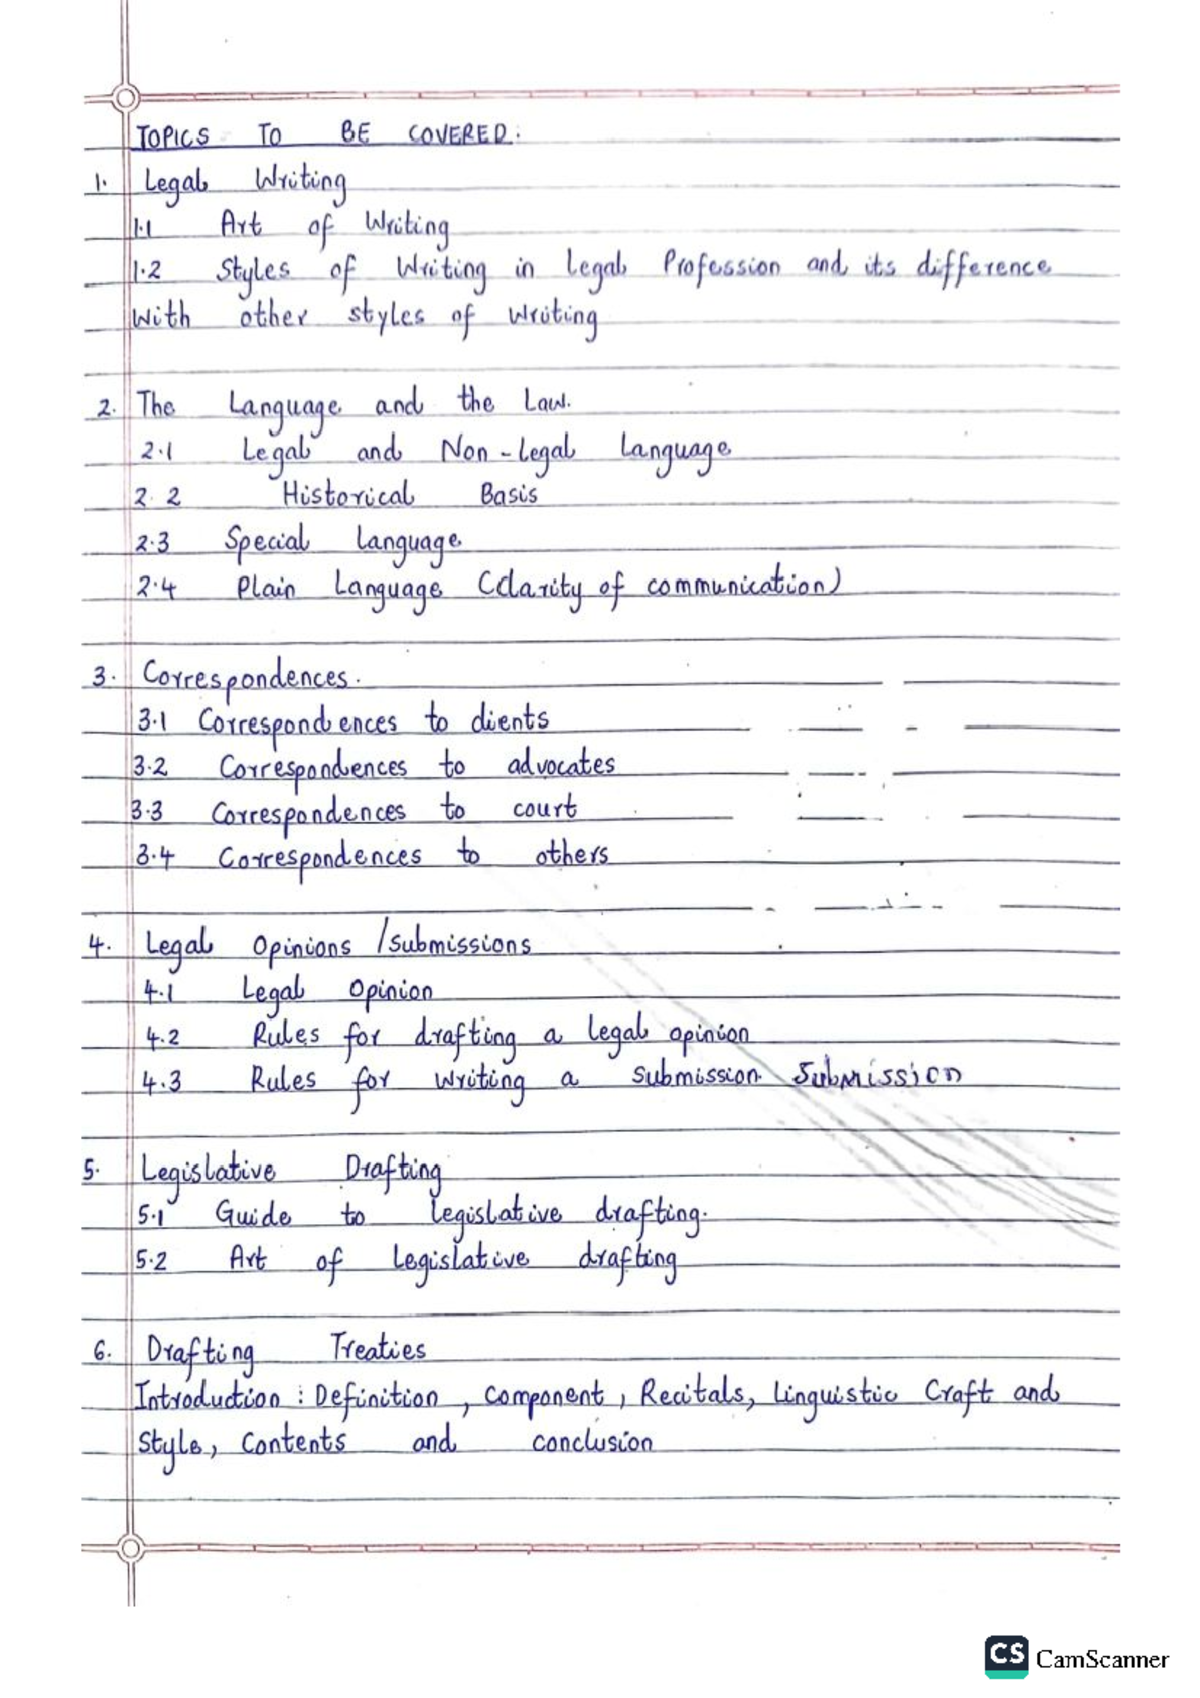 TOPICS TO BE COVERED:
1. Legal Writing
1.1 Art of Writing
1.2 Styles of Writing in Legal Profession and its difference
With other styles of Writing
2. The Language and the Law.
2.1 Legal and Non-Legal Language
2.2 Historical Basis
2.3 Special Language
2.4 Plain Language (Clarity of communication)
3. Correspondences.
3.1 Correspondences to clients
3.2 Correspondences to advocates
3.3 Correspondences to court
3.4 Correspondences to others
4. Legal Opinions /submissions
4.1 Legal Opinion
4.2 Rules for drafting a legal opinion
4.3 Rules for writing a submission. Submission
5. Legislative Drafting
5.1 Guide to Legislative drafting.
5.2 Art of Legislative drafting
6. Drafting Treaties
Introduction : Definition, Component, Recitals, Linguistic Craft and
Style, Contents and conclusion
CS CamScanner